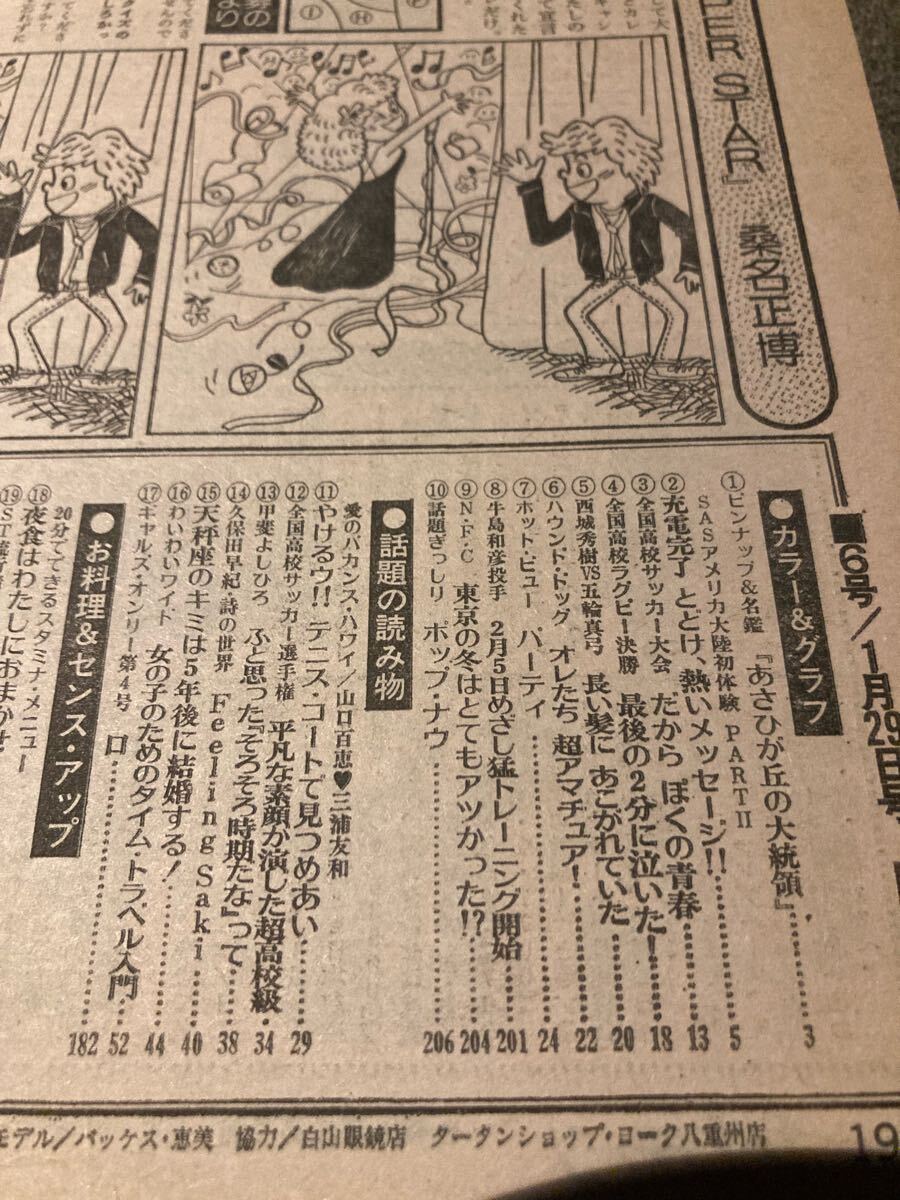 PER STAR』 桑名正博
■6号/1月29日号
●カラー&グラフ
①ピンナップ&名鑑 『あさひが丘の大統領』……3
SASアメリカ大陸初体験 PARTⅡ
②充電完了 とどけ、熱いメッセージ!!……5
③全国高校サッカー大会 だから ぼくの青春……13
④全国高校ラグビー決勝 最後の2分に泣いた!……18
⑤西城秀樹VS五輪真弓 長い髪に あこがれていた……20
⑥ハウンド・ドッグ オレたち 超アマチュア!……22
⑦ホット・ビュー パーティ……24
⑧牛島和彦投手 2月5日めざし猛トレーニング開始……201
⑨N・F・C 東京の冬はとてもアツかった!?……204
⑩話題ぎっしり ポップ・ナウ……206
●話題の読み物
愛のバカンス・ハワイ/山口百恵♥三浦友和
⑪やけるウ!! テニス・コートで見つめあい……29
⑫全国高校サッカー選手権 平凡な素顔が演した超高校級……34
⑬甲斐よしひろ ふと思った『そろそろ時期だな』って……38
⑭久保田早紀・詩の世界 Feeling Saki……40
⑮天秤座のキミは5年後に結婚する!……44
⑯わいわいワイド 女の子のためのタイム・トラベル入門……52
⑰ギャルズ・オンリー 第4号 口……182
●お料理&センス・アップ
20分でできるスタミナ・メニュー
⑱夜食はわたしにおまかせ
モデル/バッケス・恵美 協力/白山眼鏡店 タータンショップ・ヨーク八重州店
19